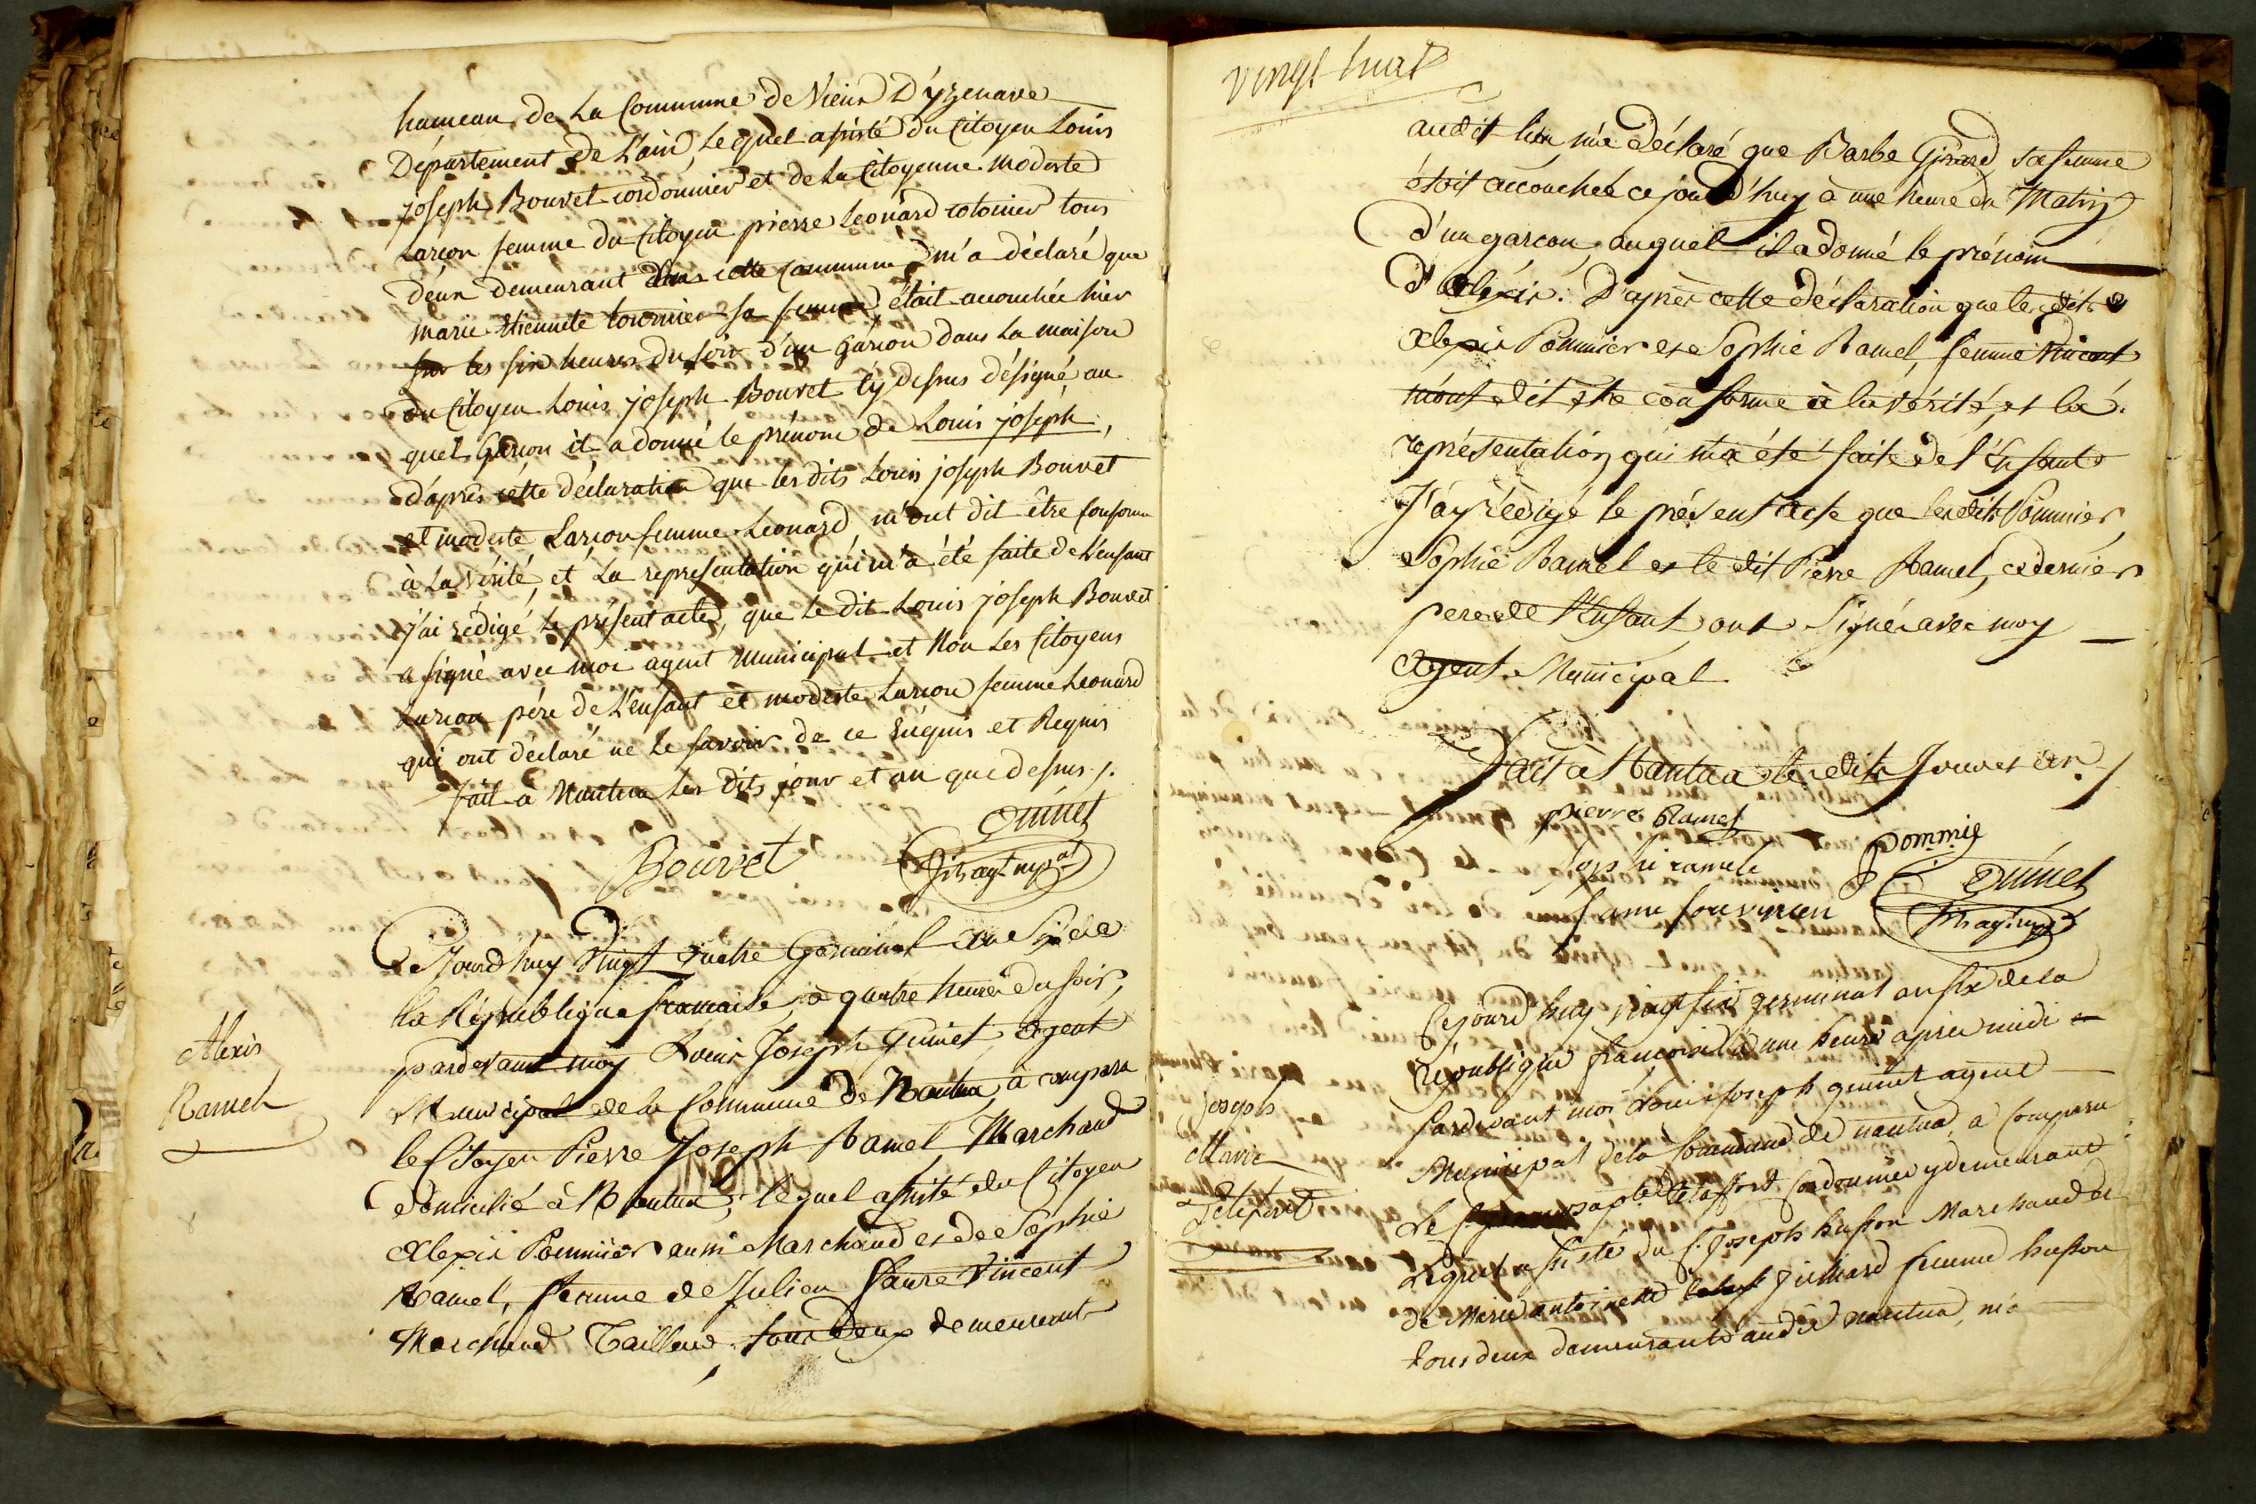 hameau de La Commune de Vieux D'yzenave
Département de L'ain, Lequel assisté du Citoyen Louis
joseph Bouvet cordonnier et de La Citoyenne modeste
Larcon femme du Citoyen pierre Leonard cotonier tous
deux demeurant dans cette commune m'a déclaré que
marie Etiennete tournier sa femme, était accouchée hier
sur les six heures du soir d'un Garçon dans La maison
du Citoyen Louis joseph Bouvet cy dessus désigné, au
quel Garçon il a donné le prénom de Louis joseph,
d'après cette déclaration que les dits Louis joseph Bouvet
et modeste Larcon femme Leonard m'ont dit être conforme
à La vérité, et La représentation qui m'a été faite de L'enfant
j'ai rédigé le présent acte, que Le dit Louis joseph Bouvet
a signé avec moi agent municipal et Non Les Citoyens
Larcon père de L'enfant et modeste Larcon femme Leonard
qui ont déclaré ne Le savoir de ce Enquis et Requis
fait à Nantua Les Dits jour et an que dessus ./.
Bouvet
Quinet
agt mpal
Alexis
Ramel
Cejourd'huy Vingt quatre Germinal an Six de
la République française, à quatre heures du soir,
pardevant moy Louis Joseph Guinet agent
Municipal de la Commune de Nantua, a comparu
le Citoyen Pierre Joseph Ramel Marchand
domicilié à Nantua, lequel assisté du Citoyen
Alexis Pommier aussi Marchand et de Sophie
Ramel, femme de Julien Faure Vincent
Marchand Tailleur, tous deux demeurant
vingt huit
audit lieu m'a déclaré que Barbe Girard sa femme
étoit accouchée ce jourd'huy à une heure du Matin
d'un garcon, auquel il a donné le prénom
d'Alexis. D'après cette déclaration que lesdits
Alexis Pommier et Sophie Ramel, femme Vincent
m'ont dit etre conforme à la vérité, et la
représentation qui m'a été faite de l'Enfant
J'ay rédigé le présent acte que lesdits Pommier
Sophie Ramel et le dit Pierre Ramel, ce dernier
pere de l'Enfant, ont Signé avec moy
Agent Municipal
Fait à Nantua lesdits Jour et an /
pierre Ramel
Pommie
sophi ramele
fame for vincen
Quinet
agt mpal
Joseph
Marie
Cejourd'huy vingt six germinal an six de la
république françoise à une heure apres midi
Pardevant moi Louis joseph guinet agent
Municipal de la Commune de nantua, a Comparu
cordonnier y demeurant
Lequel assisté du C. Joseph husson Marchand et
de Marie antoinette femme husson
tous deux demeurants audit nantua, m'a